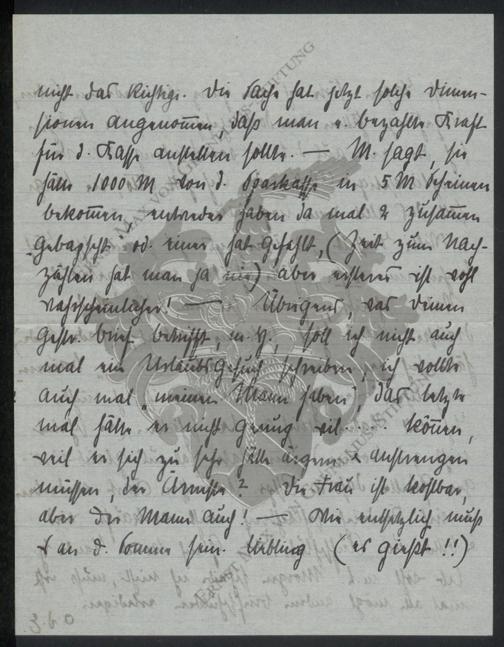 nicht das Richtige. Die Sache hat jetzt solche Dimen-
sionen angenommen, daß man e. bezahlte Kraft
für d. Kasse anstellen sollte. — M. sagt, sie
hätte 1000 M von d. Sparkasse in 5 M Scheinen
bekommen, entweder haben da mal 2 zusammen
gebappscht od. einer hat gefehlt, (Zeit zum Nach-
zählen hat man ja nie) aber ersteres ist wohl
wahrscheinlicher! — Übrigens, was Deinen
gestr. Brief betrifft, m. H., soll ich nicht auch
mal ein Urlaubsgesuch schreiben, ich wollte
auch mal "meinen Mann sehen", das letzte
mal hätte er nicht genug weil .... können,
weil er sich zu sehr hätte ärgern & anstrengen
müssen, der Ärmste? Die Frau ist kostbar,
aber der Mann auch! — Wie entsetzlich muß
an d. Somme sein. Liebling (es gießt!!)